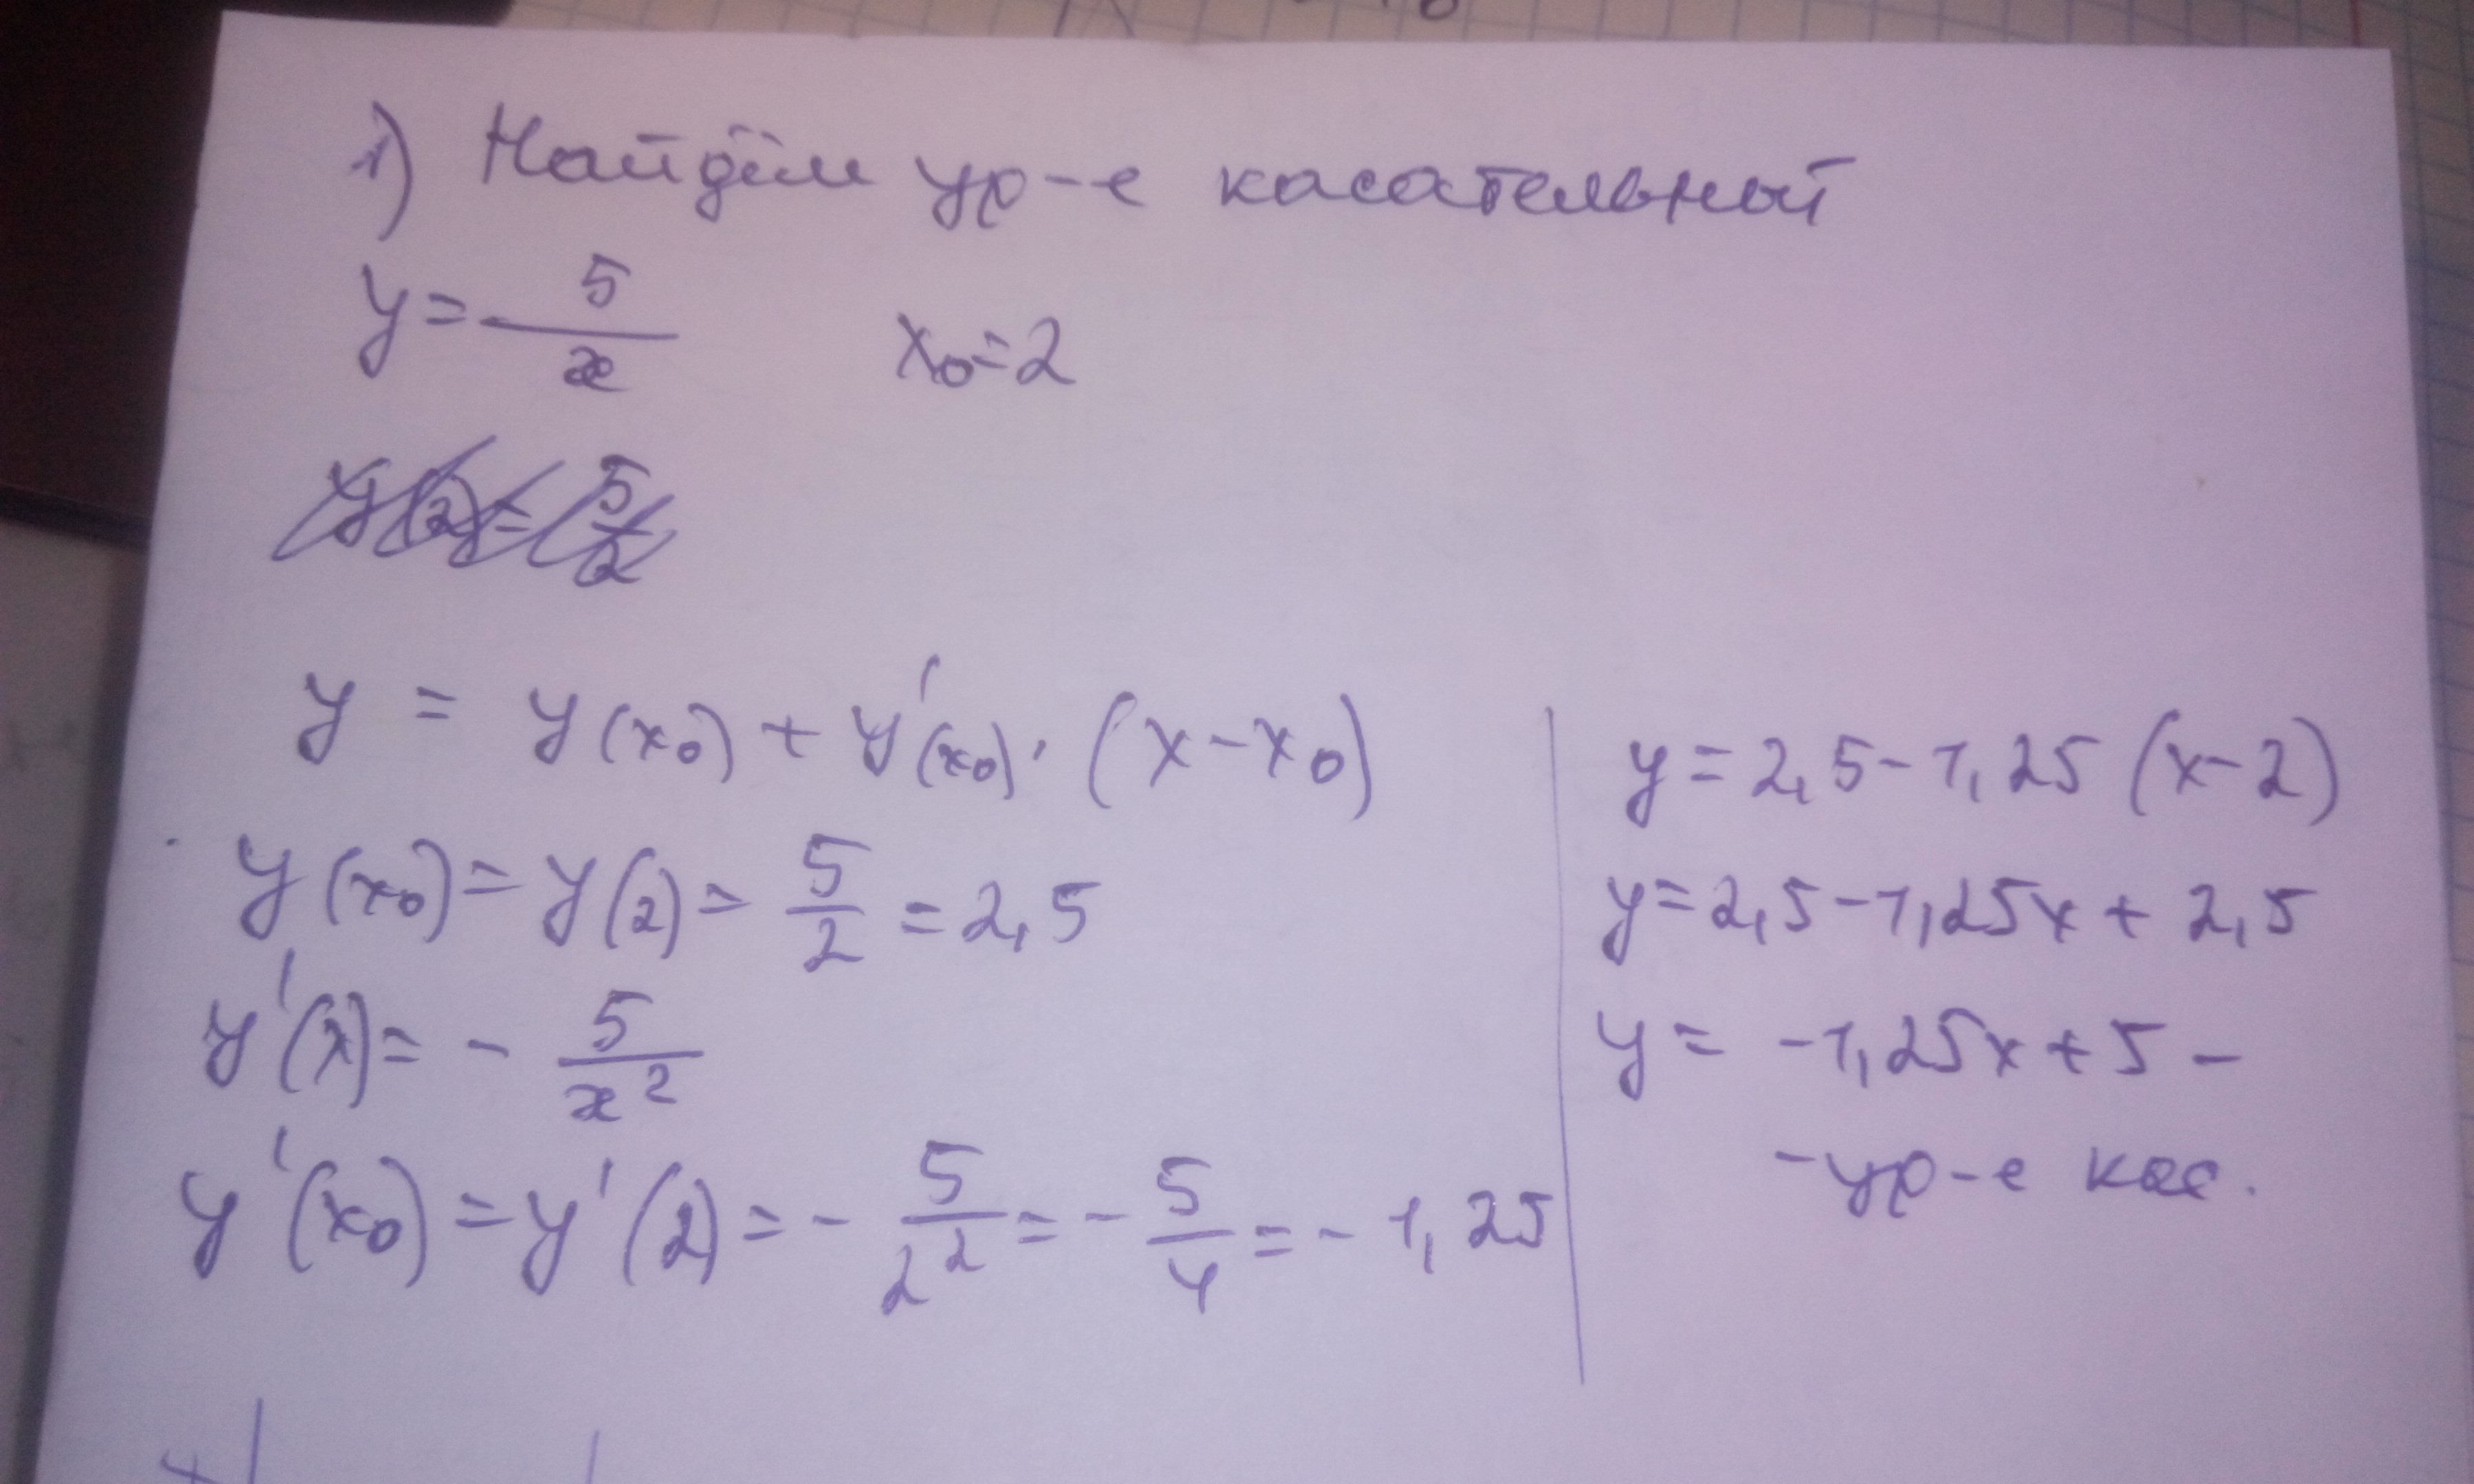 1) Найдём ур-е касательный
y = 5/x   x₀=2
y(2) = 5/2
y = y(x₀) + y'(x₀) · (x - x₀)
y(x₀) = y(2) = 5/2 = 2,5
y'(x) = - 5/x²
y'(x₀) = y'(2) = - 5/2² = - 5/4 = - 1,25
y = 2,5 - 1,25 (x - 2)
y = 2,5 - 1,25x + 2,5
y = -1,25x + 5 -
- ур-е кас.